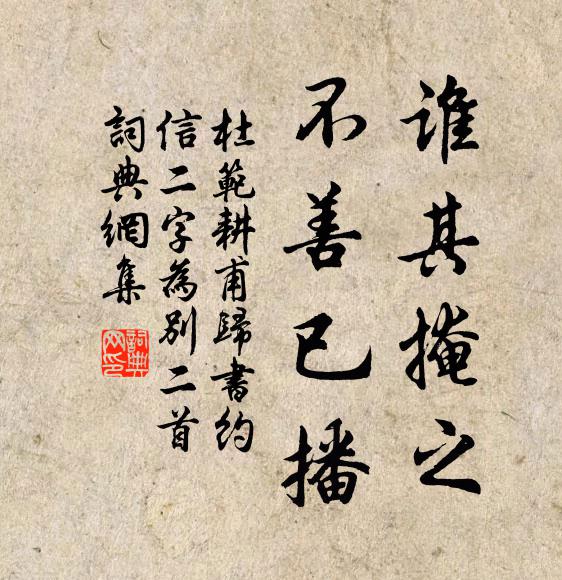 誰其掩之
不善已播
杜範耕甫歸書約
信二字為別二首
詞典網集
詞典网印